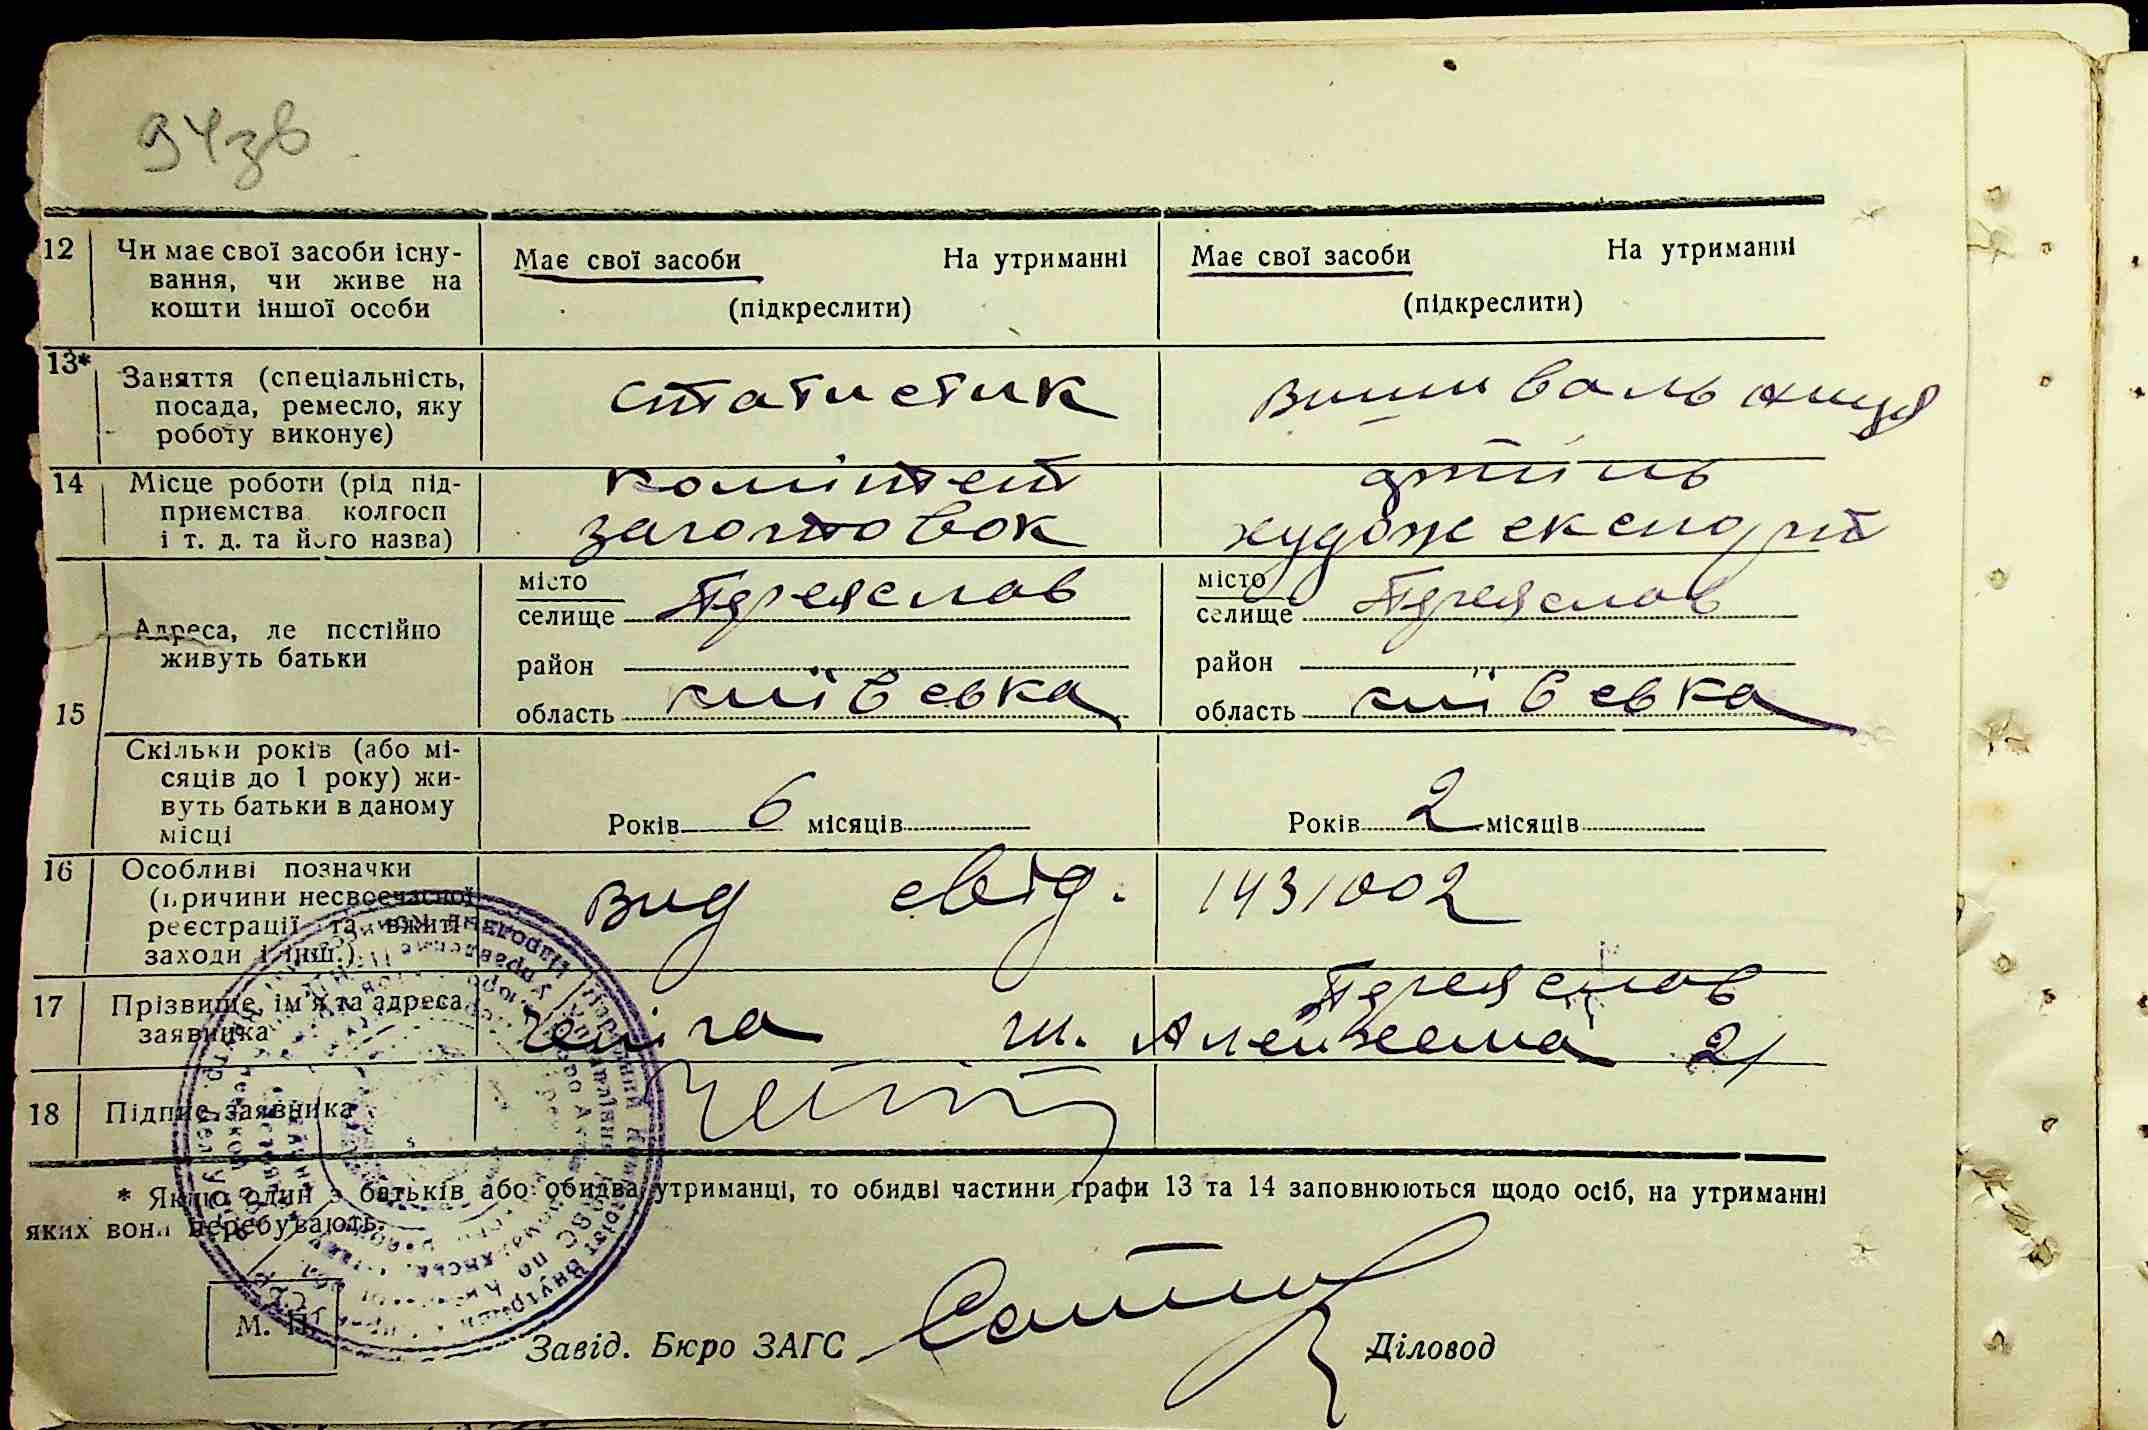 94зв
12 Чи має свої засоби існу- Має свої засоби На утриманні Має свої засоби На утриманні
вання, чи живе на
кошти іншої особи (підкреслити) (підкреслити)
13* Заняття (спеціальність, статистик вишивальниця
посада, ремесло, яку
роботу виконує)
14 Місце роботи (рід під- комітет артіль
приємства колгосп заготовок худож експорт
і т. д. та його назва)
15 Адреса, де постійно місто Переяслав місто Переяслав
живуть батьки селище селище
район район
область київська область київська
Скільки років (або мі-
сяців до 1 року) жи-
вуть батьки в даному Років 6 місяців Років 2 місяців
місці
16 Особливі позначки
(причини несвоєчасної вид свід. 1431002
реєстрації та вжиті
заходи і інш.)
17 Прізвище, ім'я та адреса Переяслав
заявника ш. Алейхема 21
18 Підпис заявника
* Якщо один з батьків або обидва утриманці, то обидві частини графи 13 та 14 заповнюються щодо осіб, на утриманні
яких вони перебувають.
М. П.
Завід. Бюро ЗАГС Діловод